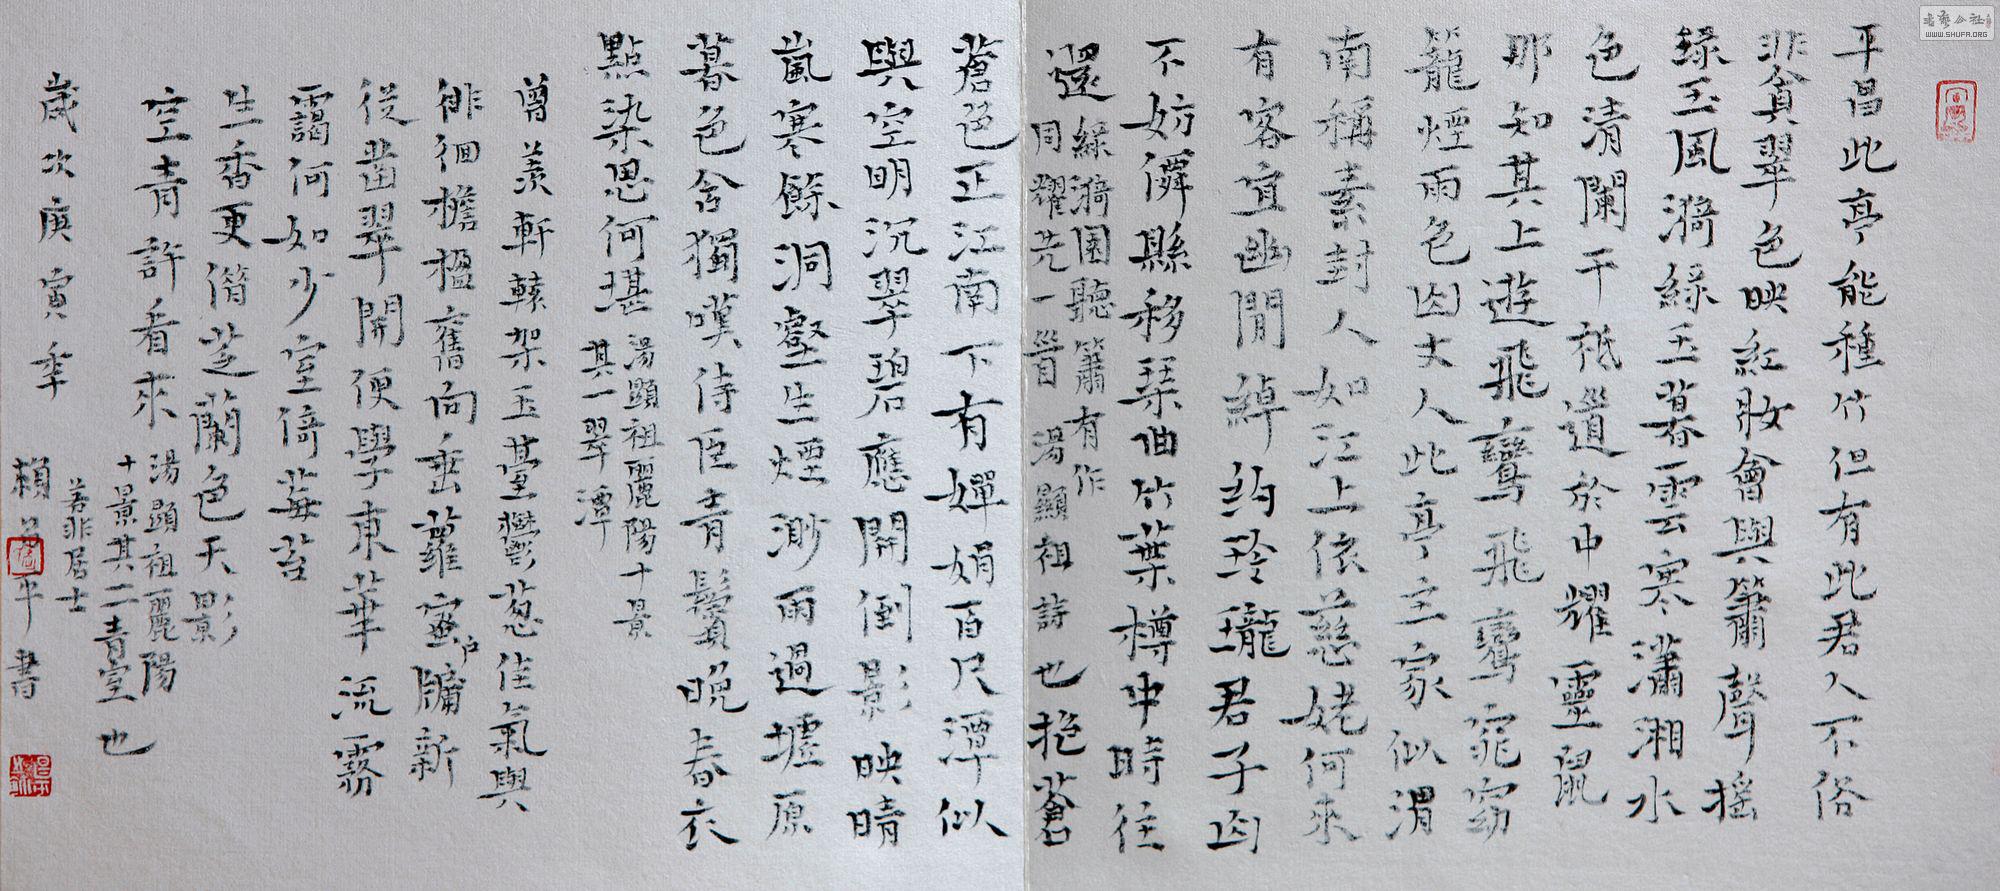 平昌此亭能種竹但有此君人不俗
非貪翠色映紅妝會與簫聲搖
綠玉風漪綠玉暮雲寒瀟湘水
色清闌干祇道於中耀靈鼠
那知其上遊飛鸞飛鸞窈窕
籠煙雨色因丈人此亭主家似渭
南稱素封人如江上依慈姥何來
有客宜幽閒綽約玲瓏君子函
不妨潭縣移琹曲竹葉樽中時往
還
綠漪園聽簫有作
同耀先一首 湯顯祖詩也
抱蒼
蒼色正江南下有嬋娟百尺潭似
與空明沉翠碧應開倒影映晴
嵐寒餘洞壑生煙渺雨過墟原
暮色含獨嘆侍臣青鬢晚春衣
點染思何堪
湯顯祖麗陽十景
其一翠潭
曾羨軒轅架玉臺鬱葱佳氣與
徘徊檐楹舊向垂蘿蜜戶牖新
從凿翠開便學東華流霧
靄何如少室倚莓苔
生香更借芝蘭色天影
空青許看來
湯顯祖麗陽
十景其二青室也
若非居士
歲次庚寅年 賴平書
書藝公社
WWW.SHUFA.ORG